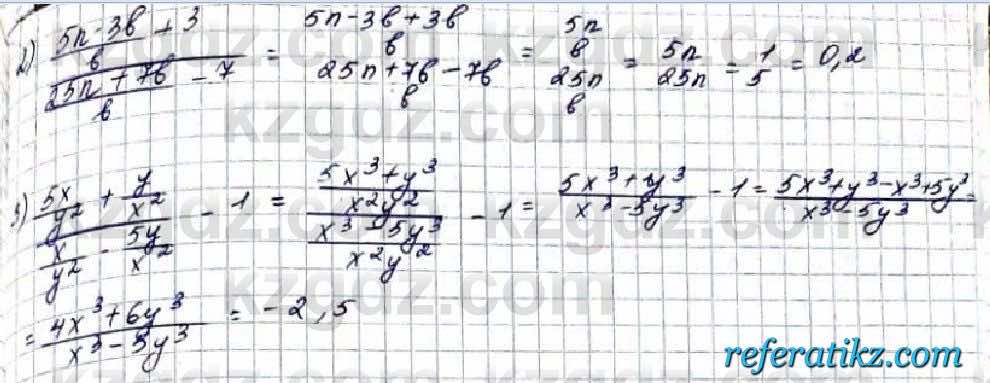 2) (5n - 3b)/b + 3 / (25n + 7b)/b - 7 = (5n - 3b + 3b)/b / (25n + 7b - 7b)/b = 5n/b / 25n/b = 5n/25n = 1/5 = 0,2
3) (5x/y² + y/x²) / (x/y² - 5y/x²) - 1 = (5x³ + y³)/x²y² / (x³ - 5y³)/x²y² - 1 = (5x³ + y³)/(x³ - 5y³) - 1 = (5x³ + y³ - x³ + 5y³)/(x³ - 5y³) =
= (4x³ + 6y³)/(x³ - 5y³) = -2,5
kzgdz.com
kzgdz.com
kzgdz.com
referatikz.com